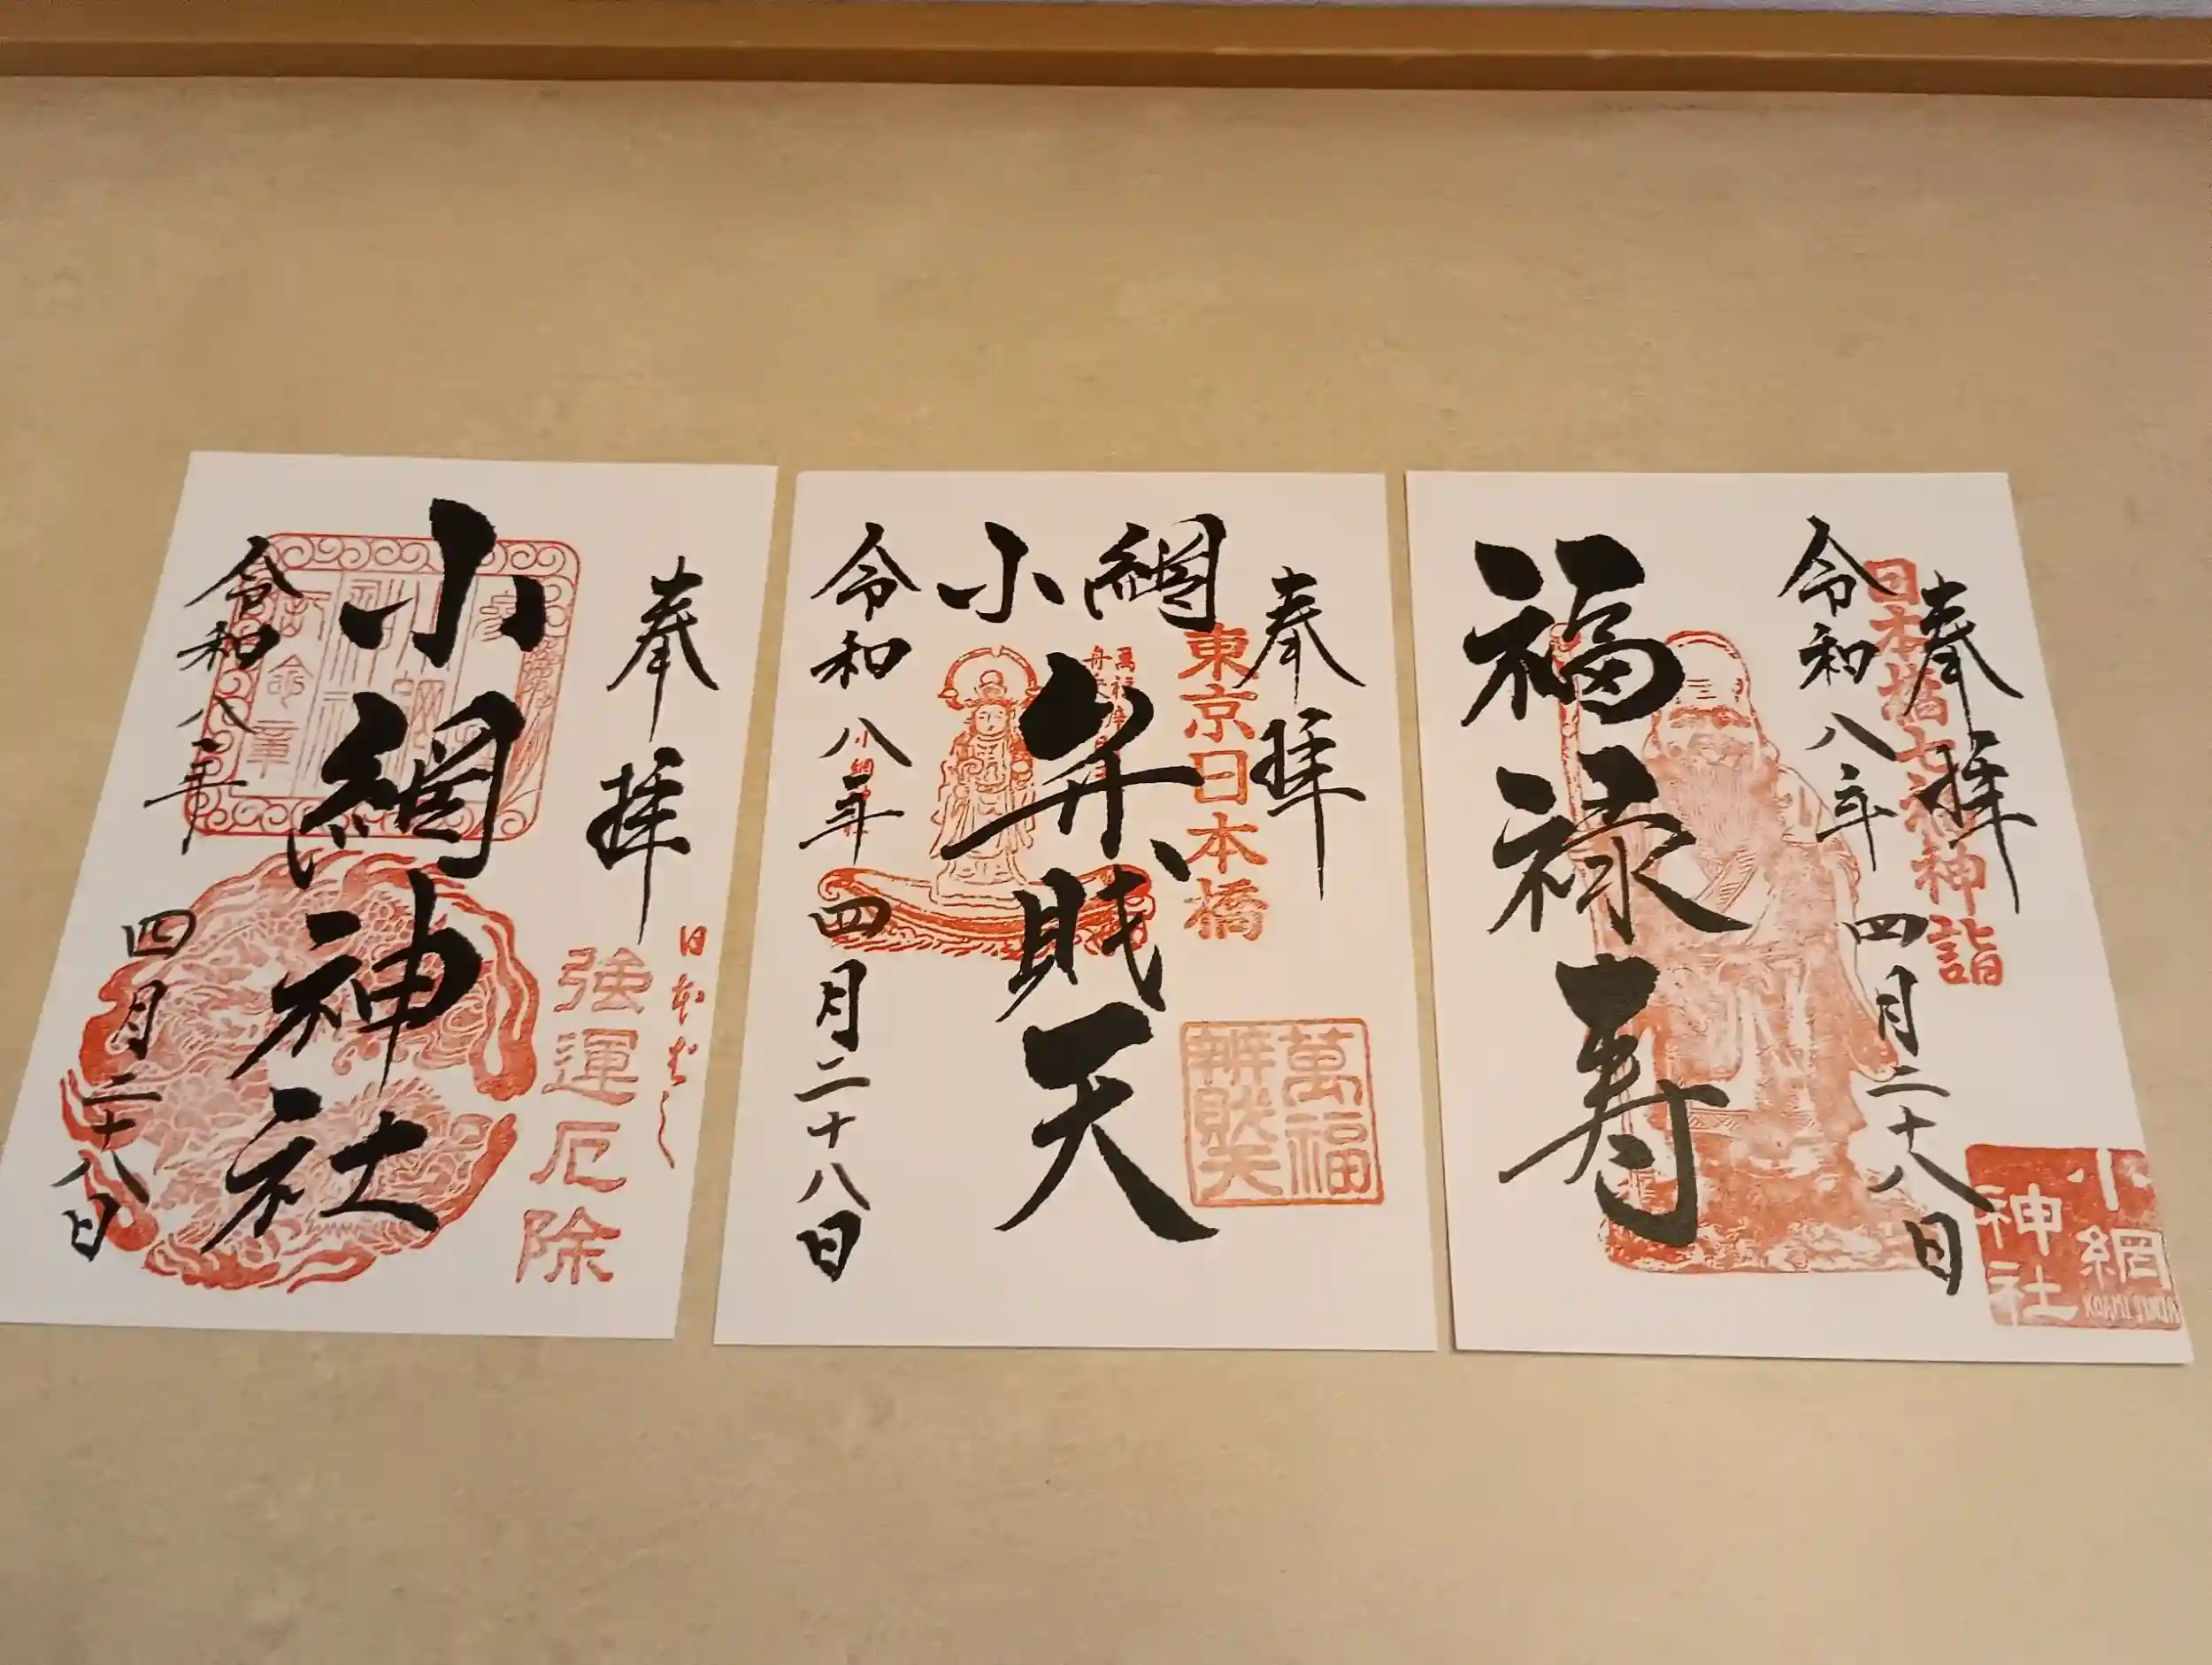 奉拝
日本ばし
強運厄除
小網神社
令和八年
四月二十八日
奉拝
東京日本橋
萬福
辨財天
小網
弁財天
令和八年
四月二十八日
奉拝
日本橋七福神詣
令和八年
四月二十八日
福禄寿
小網
神社